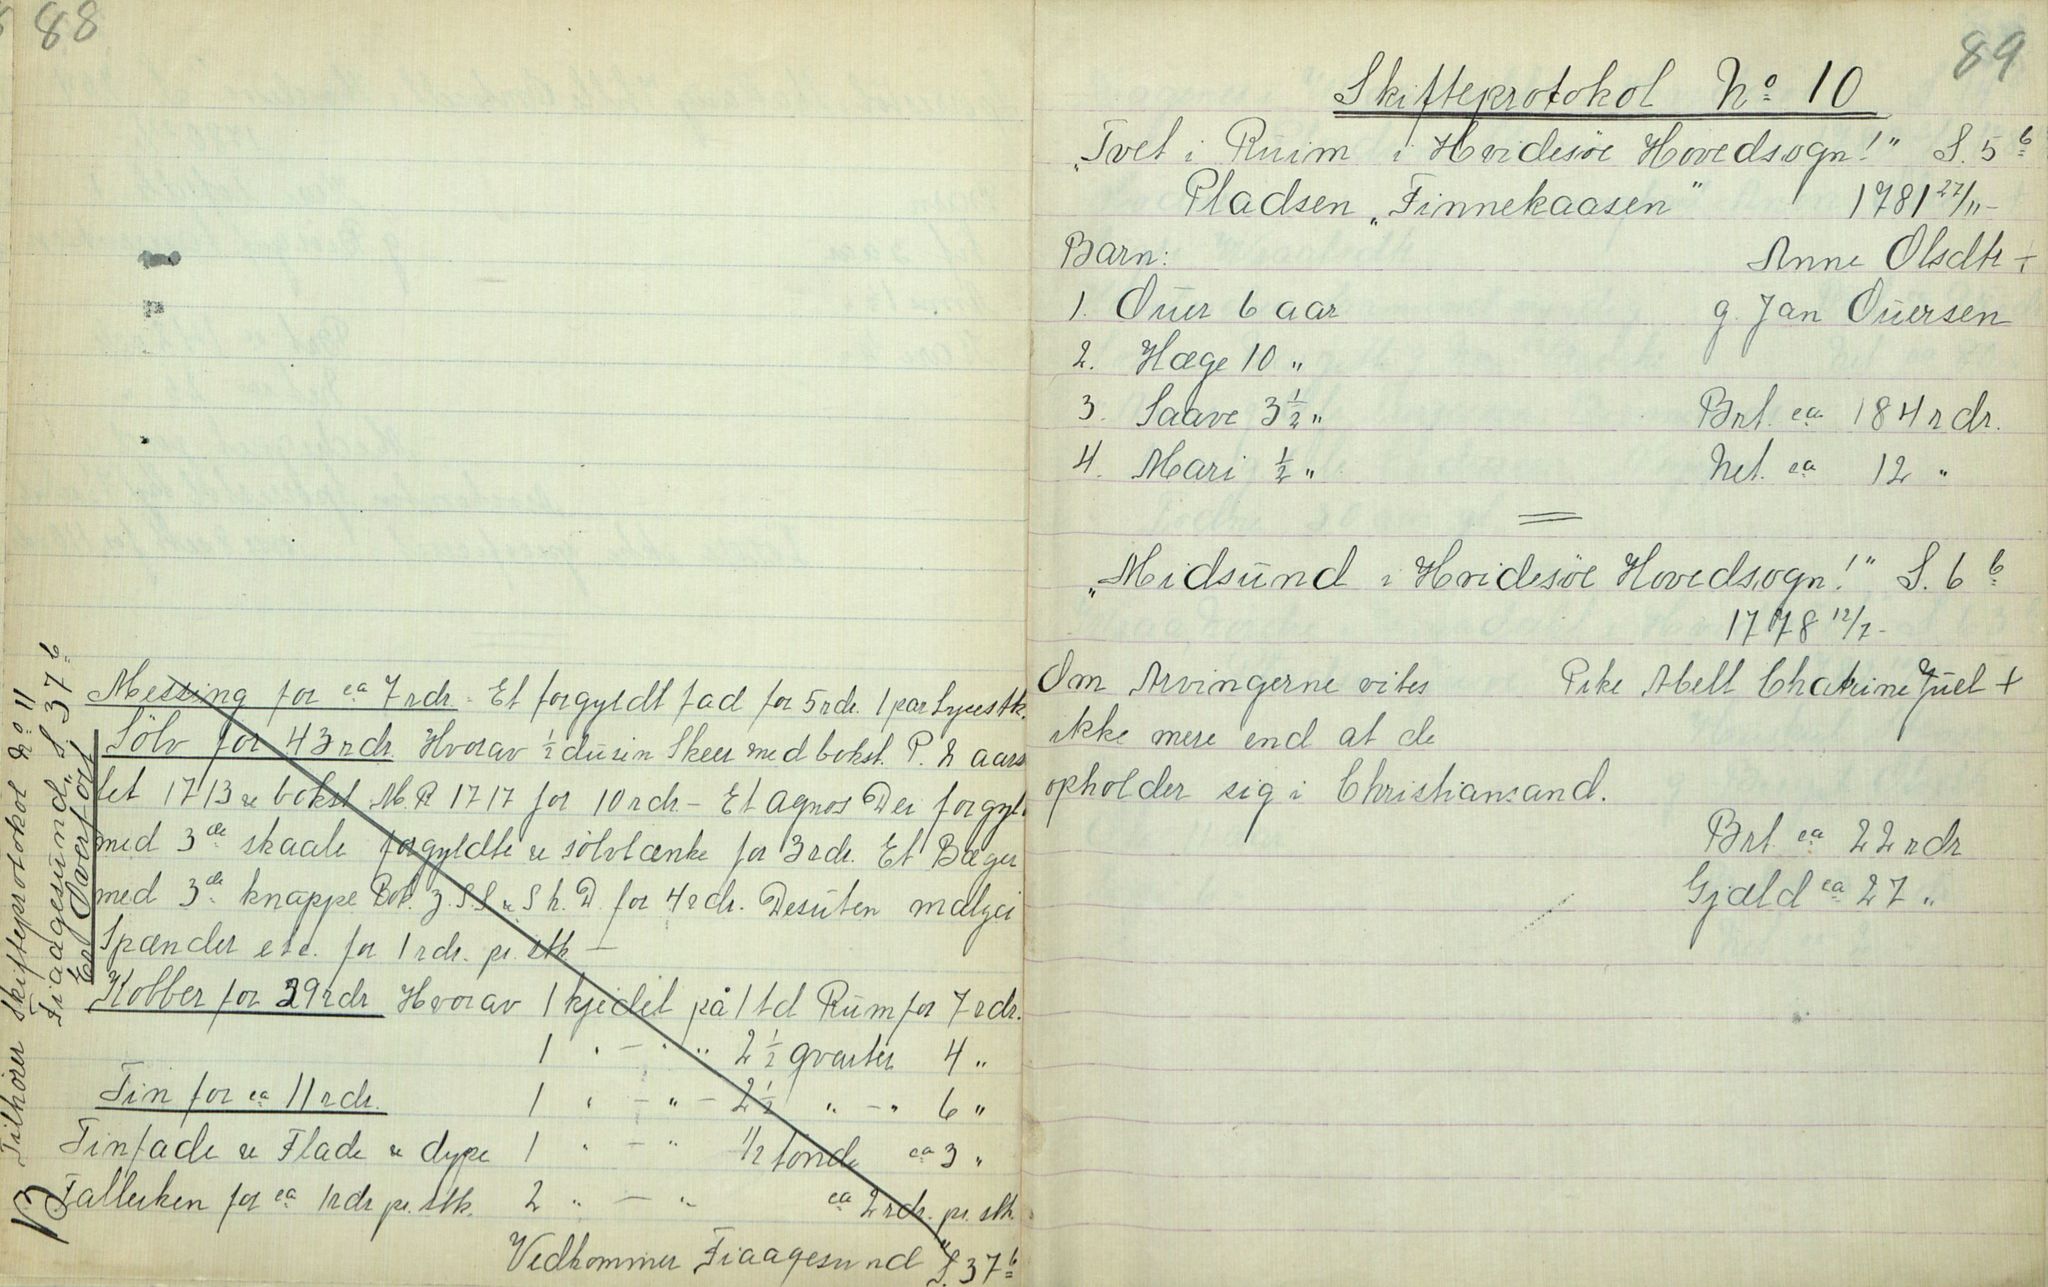 88
Messing for ca 7 rdr. Et forgyldt fad for 5 rdr. 1 par Lysestk.
Sölv for 43 rdr. Hvorav ½ dusin Skeer med bokst. P. & aars
tet 1713 & bokst M.R 1717 for 10 rdr – Et Agnos Dei forgylt
med 3de skaale forgyldte & sölvlænke for 3 rdr. Et Bæger
med 3de knappe Bok. J. S.S & S h. D. for 4 rdr. Desuten
Spænder etc. for 1 rdr. pr. stk –
Kobber for 39 rdr Hvorav 1 kjedel på 1 td Rum for 7 rdr.
1 " – " " 2½ qvarter 4 "
Tin for ca 11 rdr. 1 " – " – 2½ " – " 6 "
Tinfade & Flade & dype 1 " – " 1/2 tönde ca 3 "
Tallerken for ca 1 rdr pr. stk. 2 " – " ca 2 rdr. pr. stk.
Vedkommer Fiaagesund " S. 37 b
B Tilhörer Skifteprotokol No 11
Fiaagesund, S. 37 b
Er Overfört
89
Skifteprotokol No 10
"Tvet i Ruim i Hvidesöe Hovedsogn!" S. 5 b
Pladsen "Finnekaasen" 1781 27/11 –
Barn: Anne Olsdtr +
1. Ouer 6 aar g. Jan Ouersen
2. Hæge 10 "
3. Saave 3½ " Brt. ca 184 rdr.
4. Mari ½ " Net. ca 12 "
"Midsund i Hvidesöe Hovedsogn!" S. 6 b
1778 12/7 –
Om Arvingerne vites Pike Abell Chatrine Juel +
ikke mere end at de
opholder sig i Christiansand.
Brt ca 22 rdr
Gjæld ca 27 "